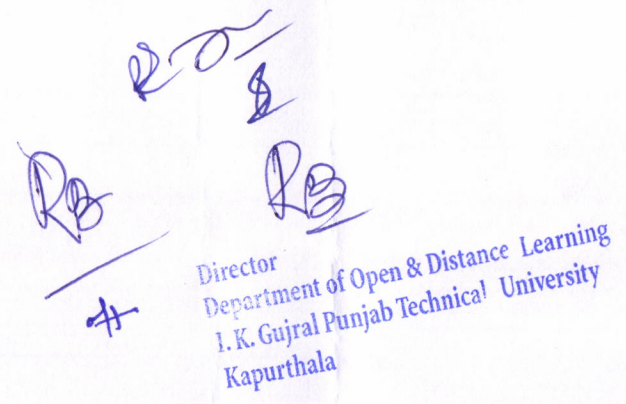 RB
RB
Director
Department of Open & Distance Learning
I. K. Gujral Punjab Technical University
Kapurthala